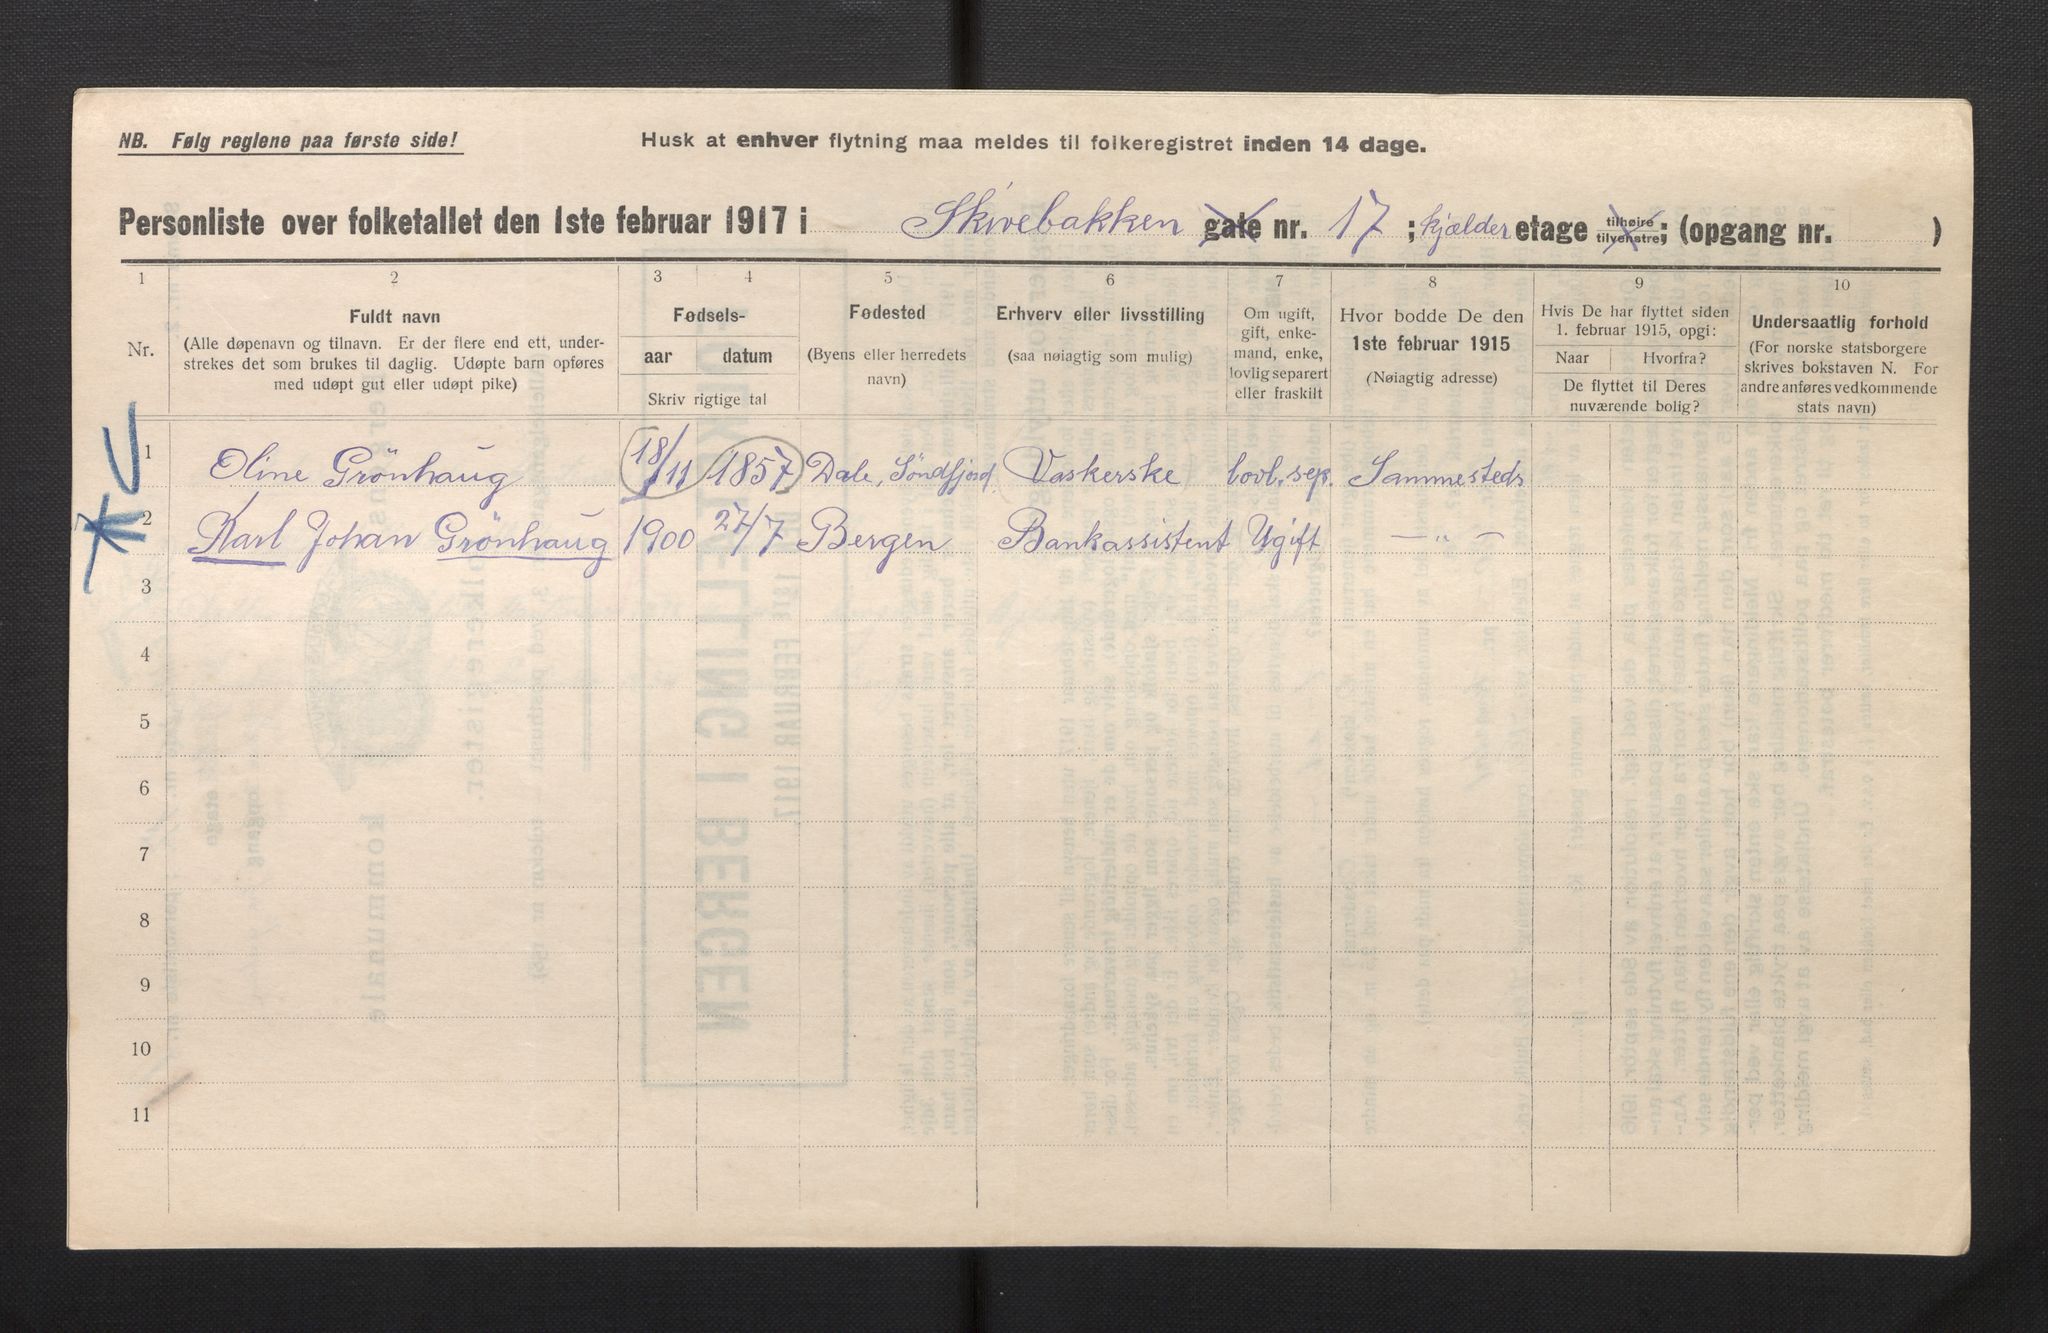 NB. Følg reglene paa første side!
Husk at enhver flytning maa meldes til folkeregistret inden 14 dage.
Personliste over folketallet den 1ste februar 1917 i Skivebakken gate nr. 17 ; kjælder etage tilhøire tilvenstre ; (opgang nr. )
1 2 3 4 5 6 7 8 9 10
Nr.
Fuldt navn
(Alle døpenavn og tilnavn. Er der flere end ett, under-
strekes det som brukes til daglig. Udøpte barn opføres
med udøpt gut eller udøpt pike)
Fødsels-
aar datum
Skriv rigtige tal
Fødested
(Byens eller herredets
navn)
Erhverv eller livsstilling
(saa nøiagtig som mulig)
Om ugift,
gift, enke-
mand, enke,
lovlig separert
eller fraskilt
Hvor bodde De den
1ste februar 1915
(Nøiagtig adresse)
Hvis De har flyttet siden
1. februar 1915, opgi:
Naar Hvorfra?
De flyttet til Deres
nuværende bolig?
Undersaatlig forhold
(For norske statsborgere
skrives bokstaven N. For
andre anføres vedkommende
stats navn)
1 Oline Grönhaug 18/11 1857 Dale, Söndfjord Vaskerske lovl. sep. Sammesteds
2 Karl Johan Grönhaug 1900 27/7 Bergen Bankassistent Ugift — „ —
3
4
5
6
7
8
9
10
11